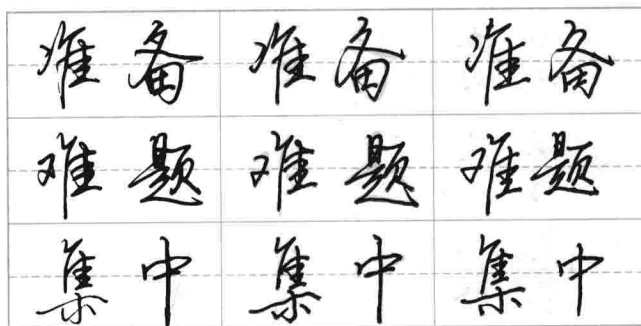 准备 准备 准备
难题 难题 难题
集中 集中 集中